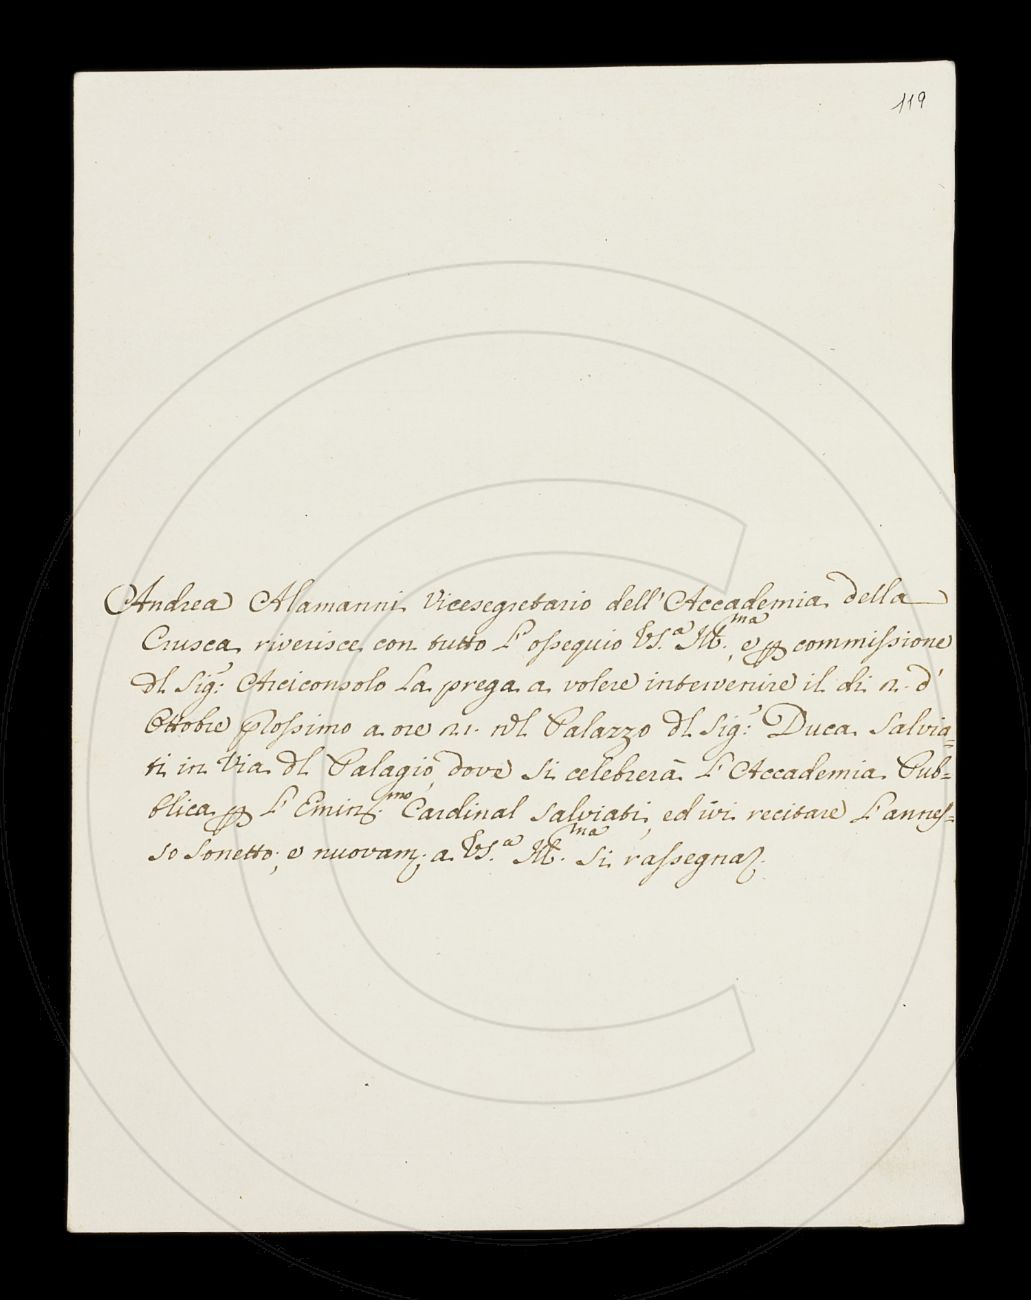 119
Andrea Alamanni Vicesegretario dell'Accademia della
Crusca riverisce con tutto l'ossequio VS.ª Ill.ma, e commissione
dl Sig.r Arciconsolo La prega a volere intervenire il di 12. d'
Ottobre prossimo a ore 21. nel Palazzo dl Sig.r Duca Salvia=
ti in Via dl Palagio, dove si celebrerà l'Accademia Pub=
blica p l'Emin.mo Cardinal Salviati, ed ivi recitare l'annes=
so Sonetto; e nuovam. a VS.ª Ill.ma si rassegna.